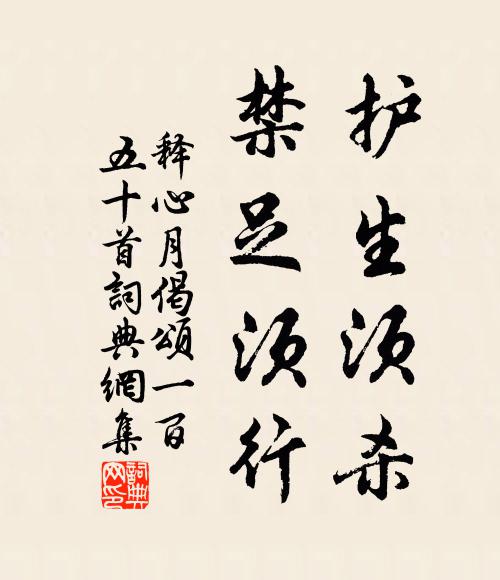 护生须杀
禁足须行
释心月偈颂一百
五十首詞典網集
詞典
网印